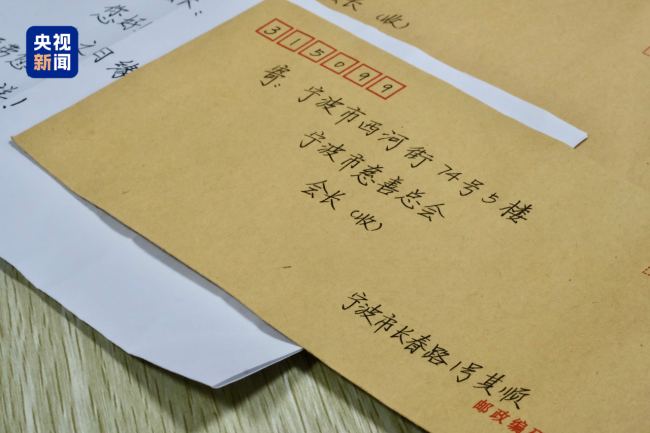 央视
新闻
您好
会长（收）
315099
寄：宁波市西河街74号5楼
宁波市慈善总会
会长（收）
宁波市长春路1号其顺
邮政编